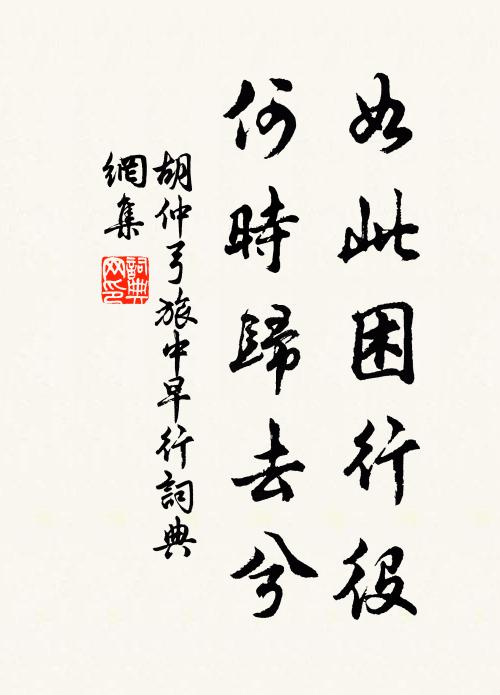 如此困行役
何時歸去兮
胡仲弓旅中早行詞典
網集
詞典網印